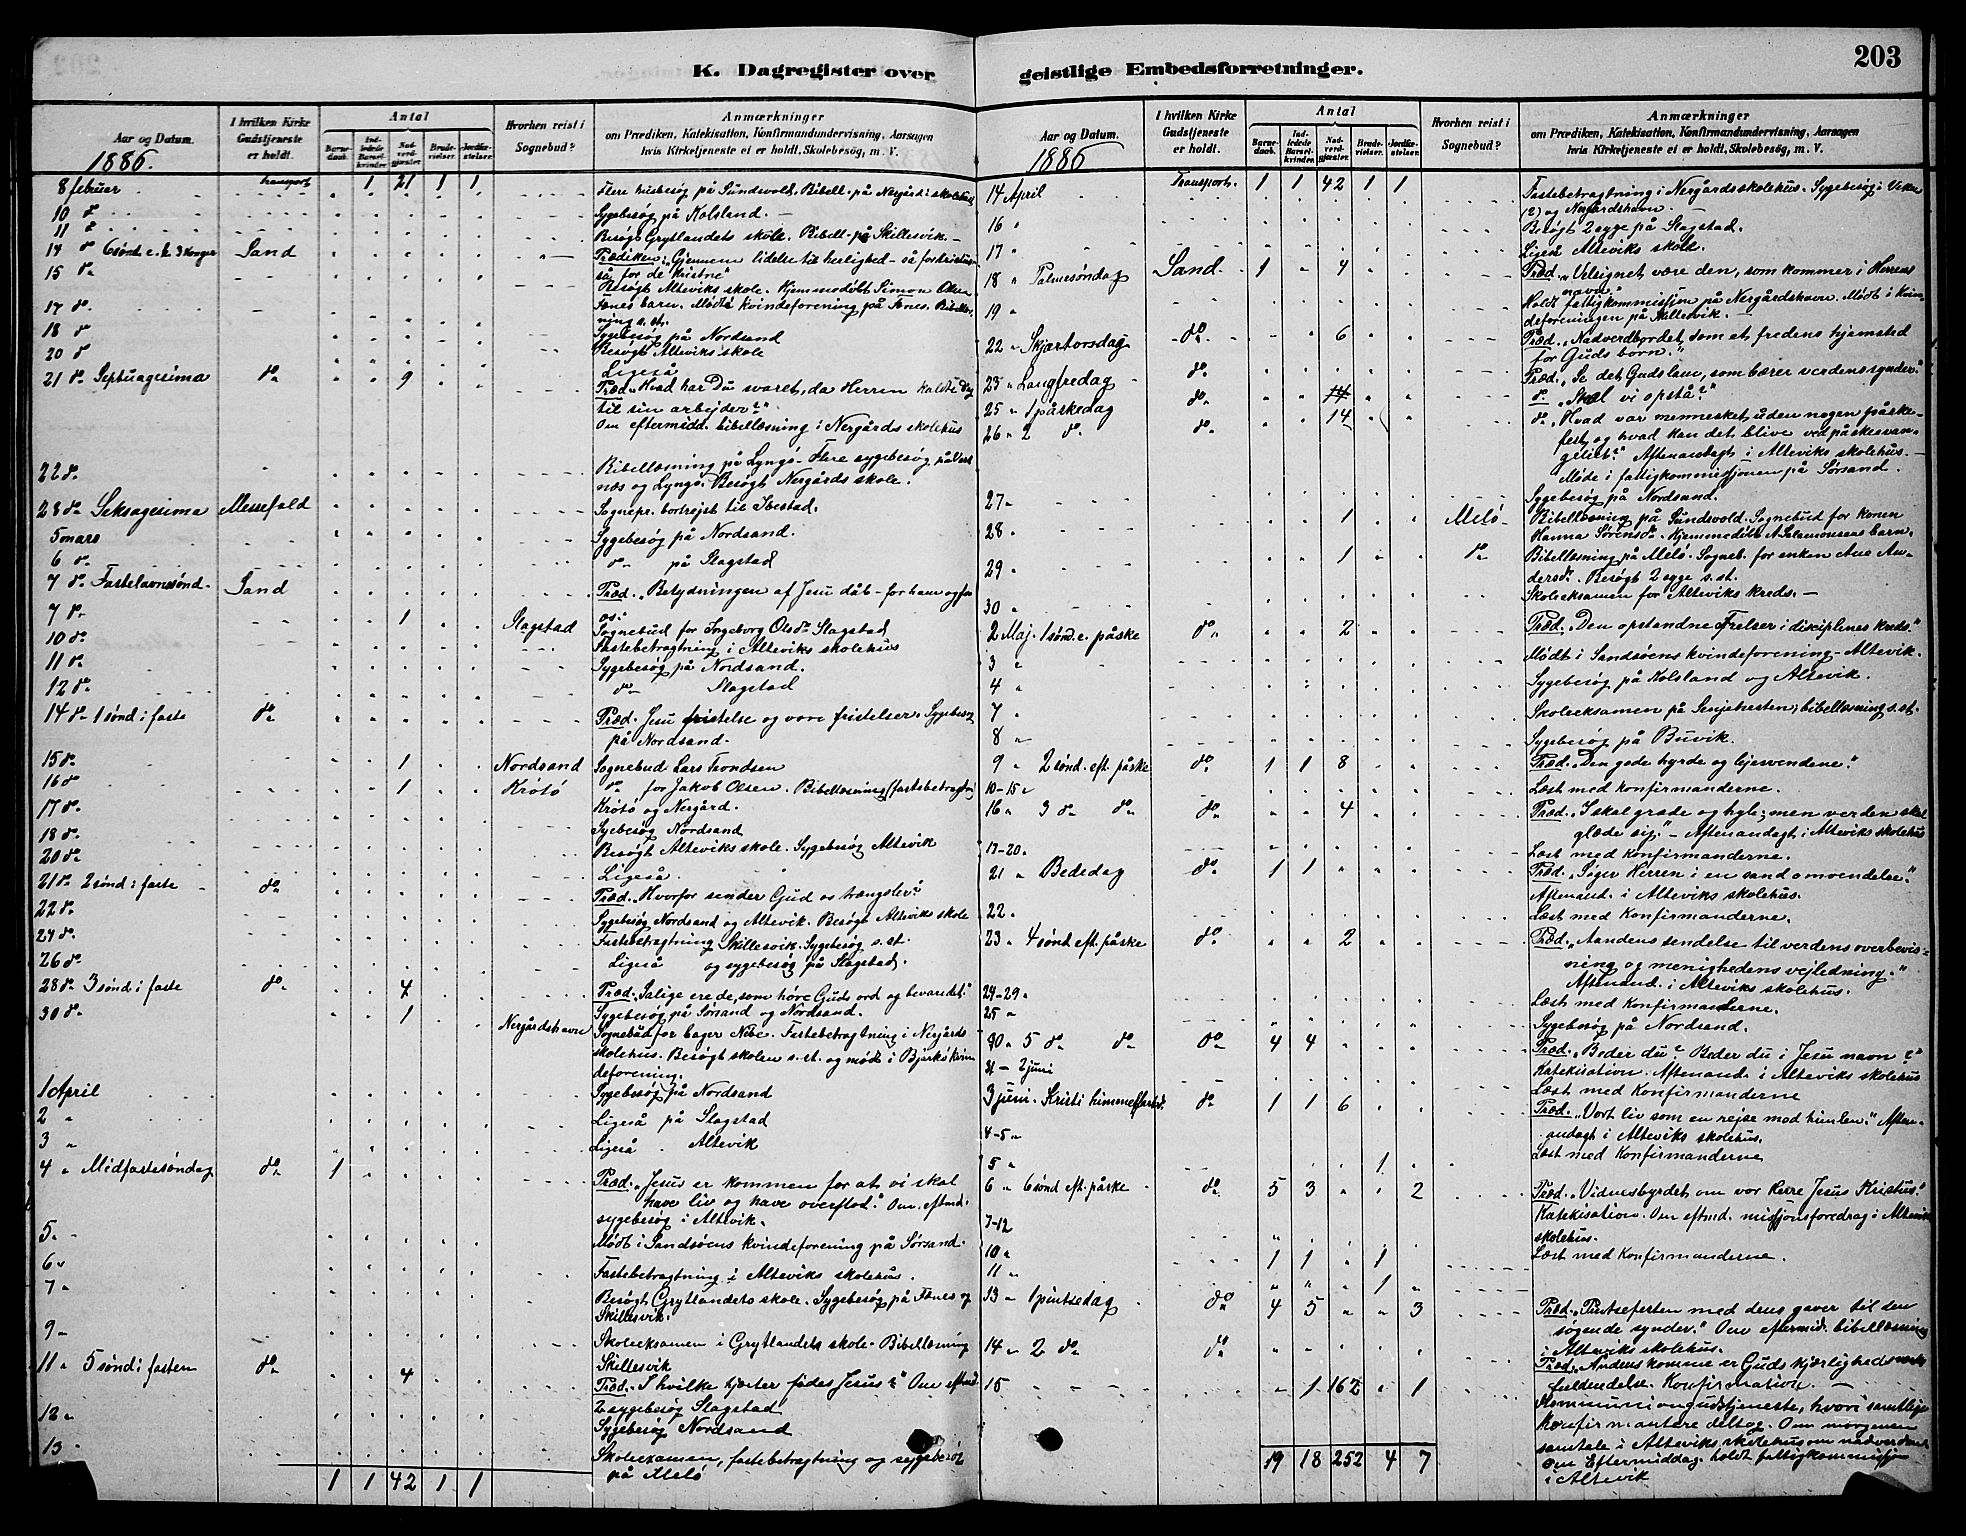 203
K. Dagregister over geistlige Embedsforretninger.
Aar og Datum.
I hvilken Kirke Gudstjeneste er holdt.
Antal
Barnedaab.
Indledede Barselkvinder.
Nadverdgjæster.
Brudevielser.
Jordfæstelser.
Hvorhen reist i Sognebud?
Anmærkninger
om Prædiken, Katekisation, Konfirmandundervisning, Aarsagen
hvis Kirketjeneste ei er holdt, Skolebesøg, m. V.
1886.
8 februar transport 1 21 1 1 Flere husbesøg på Sundsvold. Bibell. på Nergård i skolehus
10 d° Sygebesøg på Kolsland.
11 d° Besøgt Grytlandets skole. Bibell. på Skillesvik.
14 d° 6 sønd. e. h. 3 Konger Sand Prædiken: "Gjennem lidelse til herlighed – så for Kristus
så for de kristne"
15 d° Besøgt Alteviks skole. Hjemmedøbt Simon Olsen
Fones barn. Mødt i kvindeforening på Fones. Bibellæs-
17 d° ning s. st.
18 d° Sygebesøg på Nordsand
20 d° Besøgt Alteviks skole
Ligeså
21 d° Septuagesima d° 9 Præd. "Hvad har Du svaret, da Herren kaldte dig
til sin arbejder?"
Om eftermidd. bibellæsning i Nergårds skolehus
22 d° Bibellæsning på Lyngø. Flere sygebesøg på
næs og Lyngø. Besøgt Nergårds skole.
28 d° Seksagesima Messefald Sognepr. bortrejst til Ibestad.
5 mars Sygebesøg på Nordsand.
6 d° d° på Slagstad
7 d° Fastelavnssønd. Sand Præd. "Betydningen af Jesu dåb – for ham og for
os."
7 d° 1 Slagstad Sognebud for Ingeborg Olsd° Slagstad
10 d° Fastebetragtning i Alteviks skolehus
11 d° Sygebesøg på Nordsand.
12 d° d° Slagstad
14 d° 1 sønd i faste d° Præd. Jesu fristelse og vore fristelser. Sygebesøg
på Nordsand.
15 d° 1 Nordsand Sognebud Lars Trondsen
16 d° 1 Krøtø d° for Jakob Olsen. Bibellæsning (fastebetragtn)
17 d° Krøtø og Nergård.
18 d° Sygebesøg Nordsand
20 d° Besøgt Alteviks skole. Sygebesøg Altevik
Ligeså.
21 d° 2 sønd i faste d° Præd. "Hvorfor sender Gud os trængsler?"
22 d° Sygebesøg Nordsand og Altevik. Besøgt Alteviks skole
24 d° Fastebetragtning Skillesvik. Sygebesøg s. st.
26 d° Ligeså og sygebesøg på Slagstad.
28 d° 3 sønd i faste d° 4 Præd. "Salige ere de, som høre Guds ord og bevare det."
30 d° 1 Sygebesøg på Sørsand og Nordsand.
Nergårdshavn Sognebud for bager Nebe. Fastebetragtning i Nergårds
skolehus. Besøgt skolen s. st. og møde i Bjarkø kvin
deforening.
1 April Sygebesøg på Nordsand
2 " Ligeså på Slagstad
3 " Ligeså Altevik
4 " Midfastesøndag d° 1 Præd. "Jesus er kommen for at vi skal
have liv og have overflod." Om eftmd.
sygebesøg i Altevik.
5 " Mødt i Sandsøens kvindeforening på Sørsand.
6 " Fastebetragtning i Alteviks skolehus.
7 " Besøgt Grytlandets skole. Sygebesøg på Fones og
Skillesvik.
9 " Skoleeksamen i Grytlandets skole. Bibellæsning
Skillesvik
11 " 5 sønd i fasten d° 4 Præd. "I hvilke hjerter fødes Jesus?" Om eftmd.
2 sygebesøg Slagstad
12 " Sygebesøg Nordsand
13 Skoleexamen, fastebetragtning og sygebesøg
på Melø
1 1 42 1 1
Aar og Datum.
I hvilken Kirke Gudstjeneste er holdt.
Antal
Barnedaab.
Indledede Barselkvinder.
Nadverdgjæster.
Brudevielser.
Jordfæstelser.
Hvorhen reist i Sognebud?
Anmærkninger
om Prædiken, Katekisation, Konfirmandundervisning, Aarsagen
hvis Kirketjeneste ei er holdt, Skolebesøg, m. V.
1886
14 April Transport. 1 1 42 1 1 Fastebetragtning i Nergårds skolehus. Sygebesøg i Viken
(2) og Nergårdshavn.
16 " Besøgt 2 syge på Slagstad.
17 " Ligeså Alteviks skole.
18 " Palmesøndag Sand 1 4 Præd. "Velsignet være den, som kommer i Herrens
navn."
19 " Holdt fattigkommissjon på Nergårdshavn. Mødt i Kvin-
deforeningen på Skillesvik.
22 " Skjærtorsdag d° 6 Præd. "Nadverdbordet som et fredens hjemsted
for Guds børn."
23 " Langfredag d° Præd. "Se det Guds lam, som bærer verdens synder."
25 " 1 påskedag d° 14 d° "Skal vi opstå?"
26 " 2 d° d° 14 d° "Hvad var mennesket uden nogen påske-
fest og hvad kan det blive ved påskeevan-
geliet?" Aftenandagt i Alteviks skolehus.
Møde i fattigkommissjonen på Sørsand.
27 " Sygebesøg på Nordsand.
28 " 1 Melø Bibellæsning på Sundsvold. Sognebud for konen
Hanna Sørensd°. Hjemmedøbt A Salamonsens barn.
29 " 1 d° Bibellæsning på Melø. Sogneb. for enken Ane An-
dersd°. Besøgt 2 syge s. st.
30 " Skoleeksamen for Alteviks kreds.
2 Maj. 1 sønd. e. påske d° 2 Præd. "Den opstandne Frelser i disciplenes kreds."
3 " Mødt i Sandsøens kvindeforening – Altevik.
4 " Sygebesøg på Kolsland og Altevik.
7 " Skoleeksamen på Senjehesten; bibellæsning s. st.
8 " Sygebesøg på Buvik.
9 " 2 sønd. eft. påske d° 1 1 8 Præd. "Den gode hyrde og lejesvendene."
10–15 " Læst med konfirmanderne.
16 " 3 d° d° d° 4 Præd. "I skal græde og hyle; men verden skal
glæde sig." – Aftenandagt i Alteviks skolehus
17–20 " Læst med konfirmanderne.
21 " Bededag d° 1 1 Præd. "Søger Herren i en sand omvendelse."
Aftenand. i Alteviks skolehus.
22 " Læst med Konfirmanderne.
23 " 4 sønd eft. påske d° 2 Præd. "Aandens sendelse til verdens overbevis-
ning og menighedens vejledning."
Aftenand. i Alteviks skolehus.
24–29 " Læst med Konfirmanderne.
25 " Sygebesøg på Nordsand.
30 " 5 d° d° d° 4 4 Præd. "Beder du? Beder du i Jesu navn?"
Katekisation. Aftenand. i Alteviks skolehus
31 – 2 juni Læst med Konfirmanderne
3 juni. Kristi himmelfartsd. d° 1 1 6 Præd. "Vort liv som en rejse mod himlen." Aften-
andagt i Alteviks skolehus.
4–5 " Læst med Konfirmanderne
5 " 1
6 " 6 sønd eft. påske d° 5 3 2 Præd. "Vidnesbyrdet om vor Herre Jesus Kristus."
Katekisation. Om eftmd. misjonsforedrag i Alteviks
skolehus.
7–12 Læst med Konfirmanderne.
10 " 1 1 1
11 " 1
13 " 1 pintsedag d° 4 5 3 Præd. "Pintsefesten med dens gaver til den
søgende synder." Om eftermid. bibellæsning
i Alteviks skolehus.
14 " 2 d° d° Præd. Åndens komme er Guds kjærligheds
fuldendelse. Konfirmation.
15 1 162 1 Kommuniongudstjeneste, hvori samtlige
Konfirmantere deltog. Om morgenen
samtale i Alteviks skolehus om nadverden.
Om Eftermiddag. holdt fattigkommissjon
i Altevik
19 18 252 4 7